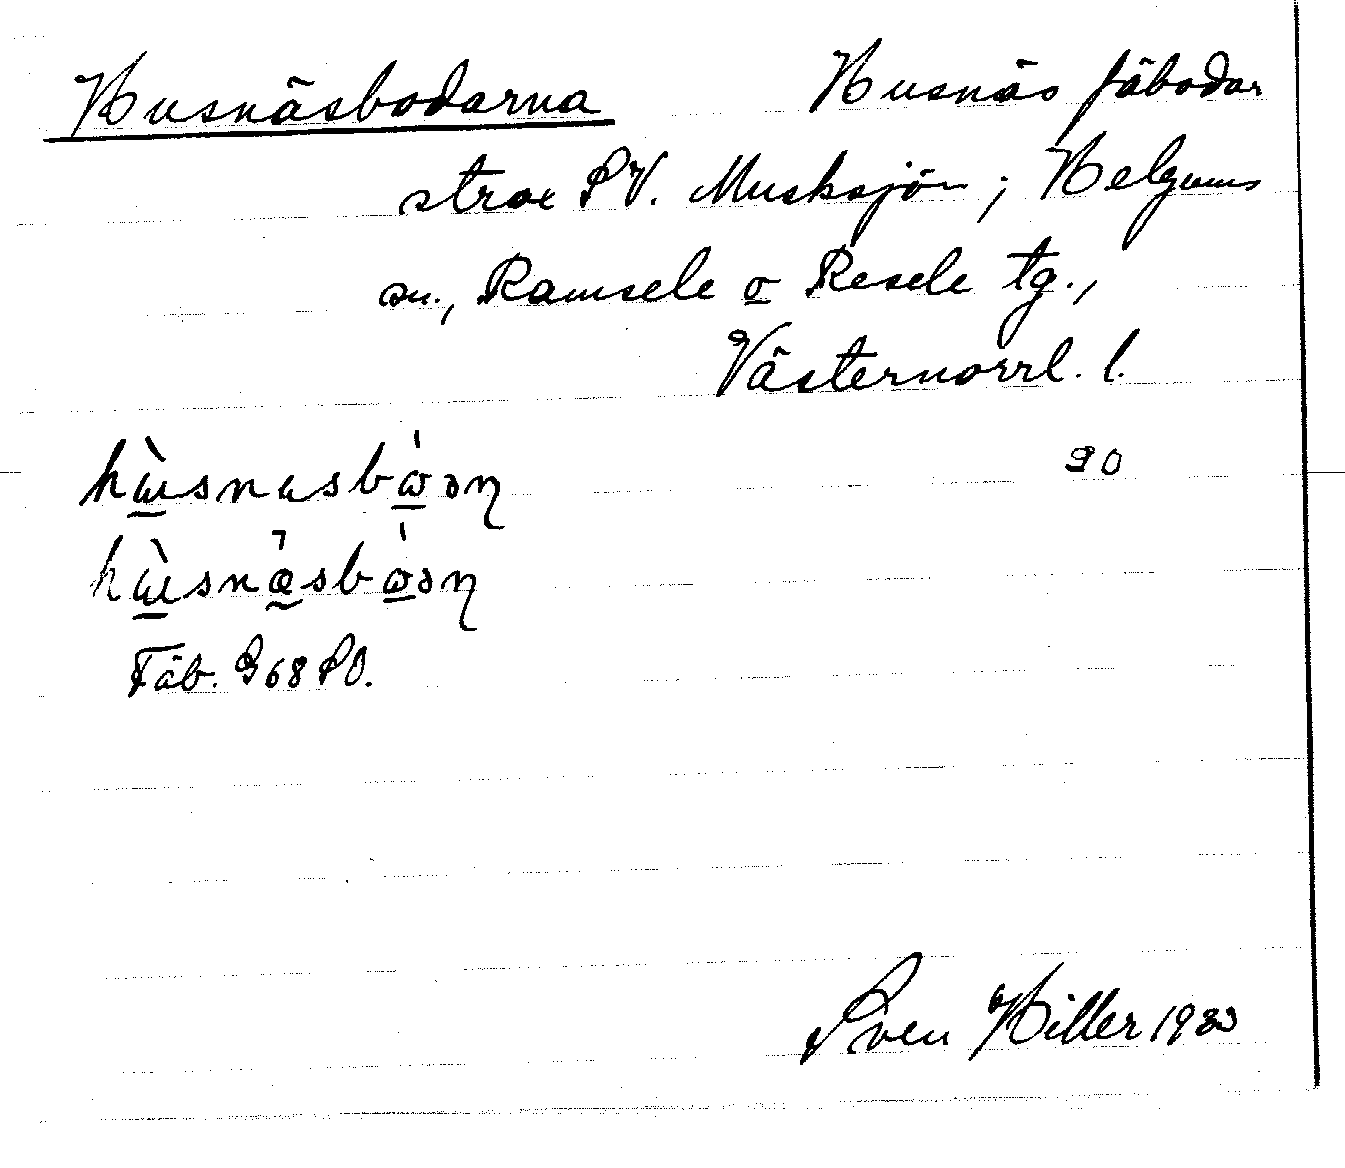 Husnäsbodarna Husnäs fäbodar
strax SV. Musksjön; Helgums
sn., Ramsele o Resele tg.,
Västernorrl. l.
90
hùsnasbòən
hùsnæsbòən
Fäb. 968 SO.
Sven Hiller 1933